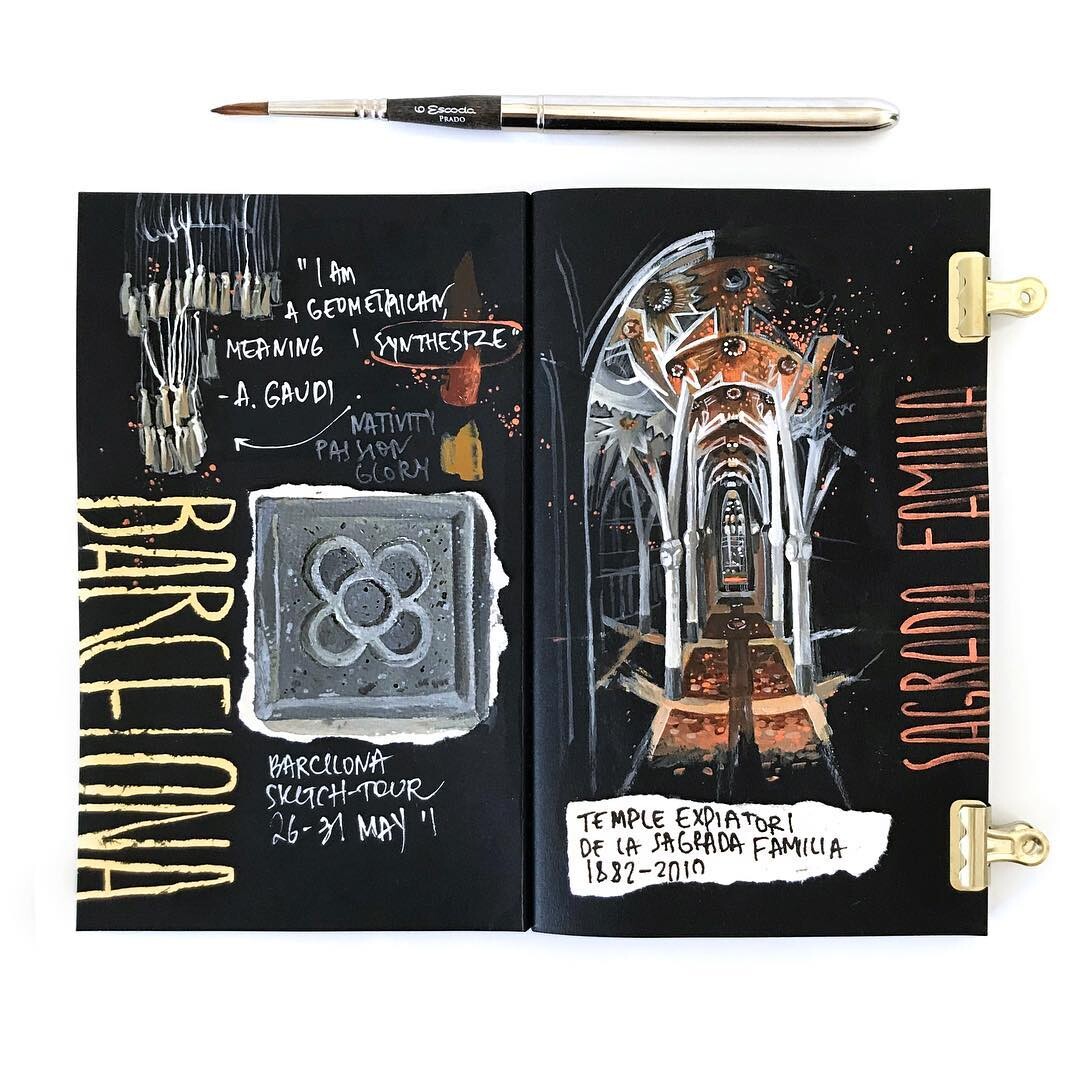 6 Escoda
PRADO
"I AM
A GEOMETRICAN,
MEANING I SYNTHESIZE"
- A. GAUDI
NATIVITY
PASSION
GLORY
BARCELONA
BARCELONA
SKETCH-TOUR
26-31 MAY '1
SAGRADA FAMILIA
TEMPLE EXPIATORI
DE LA SAGRADA FAMILIA
1882-2010